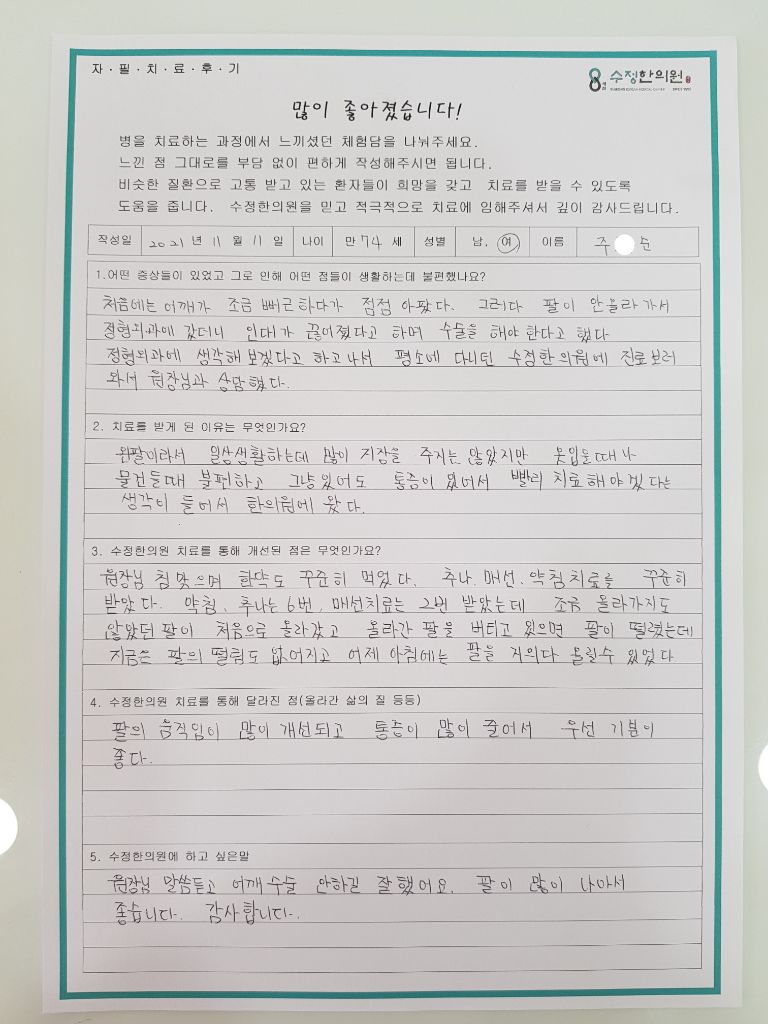 자·필·치·료·후·기
수정한의원
많이 좋아졌습니다!
병을 치료하는 과정에서 느끼셨던 체험담을 나눠주세요.
느낀 점 그대로를 부담 없이 편하게 작성해주시면 됩니다.
비슷한 질환으로 고통 받고 있는 환자들이 희망을 갖고 치료를 받을 수 있도록
도움을 줍니다. 수정한의원을 믿고 적극적으로 치료에 임해주셔서 깊이 감사드립니다.
작성일 2021 년 11 월 11 일 나이 만 74 세 성별 남, 여 이름 주 순
1.어떤 증상들이 있었고 그로 인해 어떤 점들이 생활하는데 불편했나요?
처음에는 어깨가 조금 뻐근하다가 점점 아팠다. 그러다 팔이 안올라가서
정형외과에 갔더니 인대가 끊어졌다고 하며 수술을 해야한다고 했다
정형외과에 생각해보겠다고 하고나서 평소에 다니던 수정한의원에 진료보러
와서 원장님과 상담했다.
2. 치료를 받게 된 이유는 무엇인가요?
왼팔이라서 일상생활하는데 많이 지장을 주지는 않았지만 옷입을때나
물건들때 불편하고 그냥있어도 통증이 있어서 빨리 치료해야겠다는
생각이 들어서 한의원에 왔다.
3. 수정한의원 치료를 통해 개선된 점은 무엇인가요?
원장님 침맞으며 한약도 꾸준히 먹었다. 추나, 매선, 약침치료를 꾸준히
받았다. 약침, 추나는 6번, 매선치료는 2번 받았는데 조금 올라가지도
않았던 팔이 처음으로 올라갔고 올라간 팔을 버티고 있으면 팔이 떨렸는데
지금은 팔의 떨림도 없어지고 어제 아침에는 팔을 거의다 올릴수 있었다
4. 수정한의원 치료를 통해 달라진 점(올라간 삶의 질 등등)
팔의 움직임이 많이 개선되고 통증이 많이 줄어서 우선 기분이
좋다.
5. 수정한의원에 하고 싶은말
원장님 말씀듣고 어깨수술 안하길 잘했어요. 팔이 많이 나아서
좋습니다. 감사합니다.